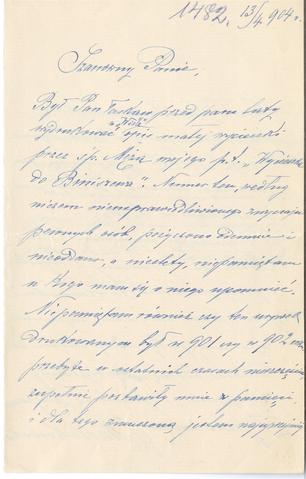 1482. 13/4 904 r.
Szanowny Panie,
Był Pan łaskaw przed paru laty
w „Wiśle”
wydrukować opis małej wycieczki
przez śp. Męża mojego p.t. „Wycieczka
do Biniszewa”. Numer ten, według
niezem nieusprawiedliwionego zwyczaju
pewnych osób, pożyczono odemnie i
nieoddano, a niestety, niepamiętam
u kogo mam się o niego upomnieć.
Niepamiętam również czy ten wyjątek
drukowanym był w 901 czy w 902 roku,
przebyte w ostatnich czasach nieszczęścia
zupełnie pozbawiły mnie pamięci
i dla tego zmuszoną jestem najuprzejmiej